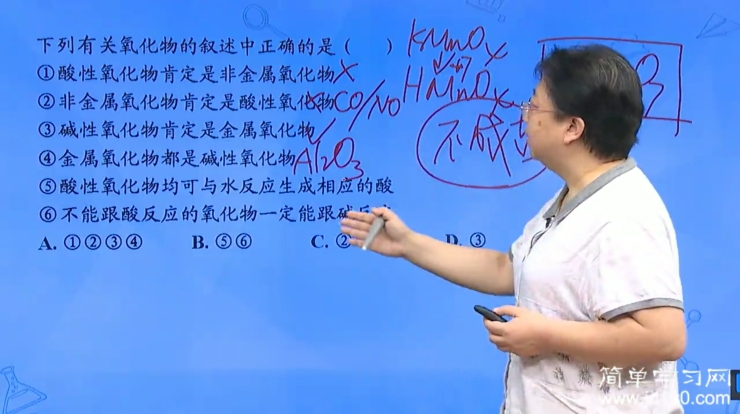 下列有关氧化物的叙述中正确的是（ ）
①酸性氧化物肯定是非金属氧化物 ×
②非金属氧化物肯定是酸性氧化物 × CO/NO
③碱性氧化物肯定是金属氧化物
④金属氧化物都是碱性氧化物 Al2O3
⑤酸性氧化物均可与水反应生成相应的酸
⑥不能跟酸反应的氧化物一定能跟碱
A. ①②③④ B. ⑤⑥ C. ② D. ③
KMnOx
+7
HMnOx
不成
简单学习网